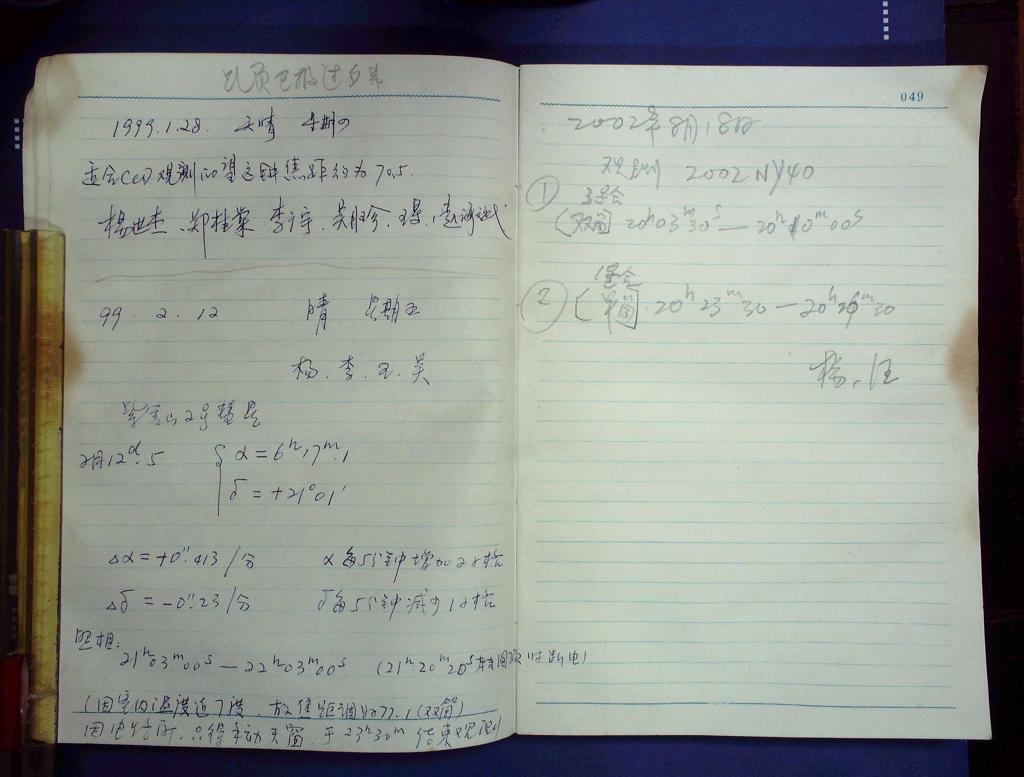 此页已报过多弟
1999.1.28. 天晴 星期四
适合CCD观测的望这种焦距约为70.5.
杨世杰、郑桂棠 李 宇、吴 珍、王 ,赵
99. 2. 12 晴 星期五
杨. 李. 王. 吴
紫金山2号彗星
2月12ᵈ.5 α = 6ʰ17ᵐ.1
δ = +21°01′
Δα = +0″.413/分 α每55分钟增加2 格
Δδ = -0″.23/分 δ每55分钟减少1 格
照相:
21ʰ03ᵐ00ˢ — 22ʰ03ᵐ00ˢ (21ʰ20ᵐ20ˢ 圆顶时断电)
(因室内温度近7度, 故焦距调为77.1 (双筒)
因电 , 只得手动天窗, 于23ʰ30ᵐ 结束观测
049
2002年8月18日
观测 2002 NY40
① 
双筒 20ʰ03ᵐ30ˢ — 20ʰ10ᵐ00ˢ
② 
单筒 20ʰ23ᵐ30 — 20ʰ26ᵐ30
杨、汪